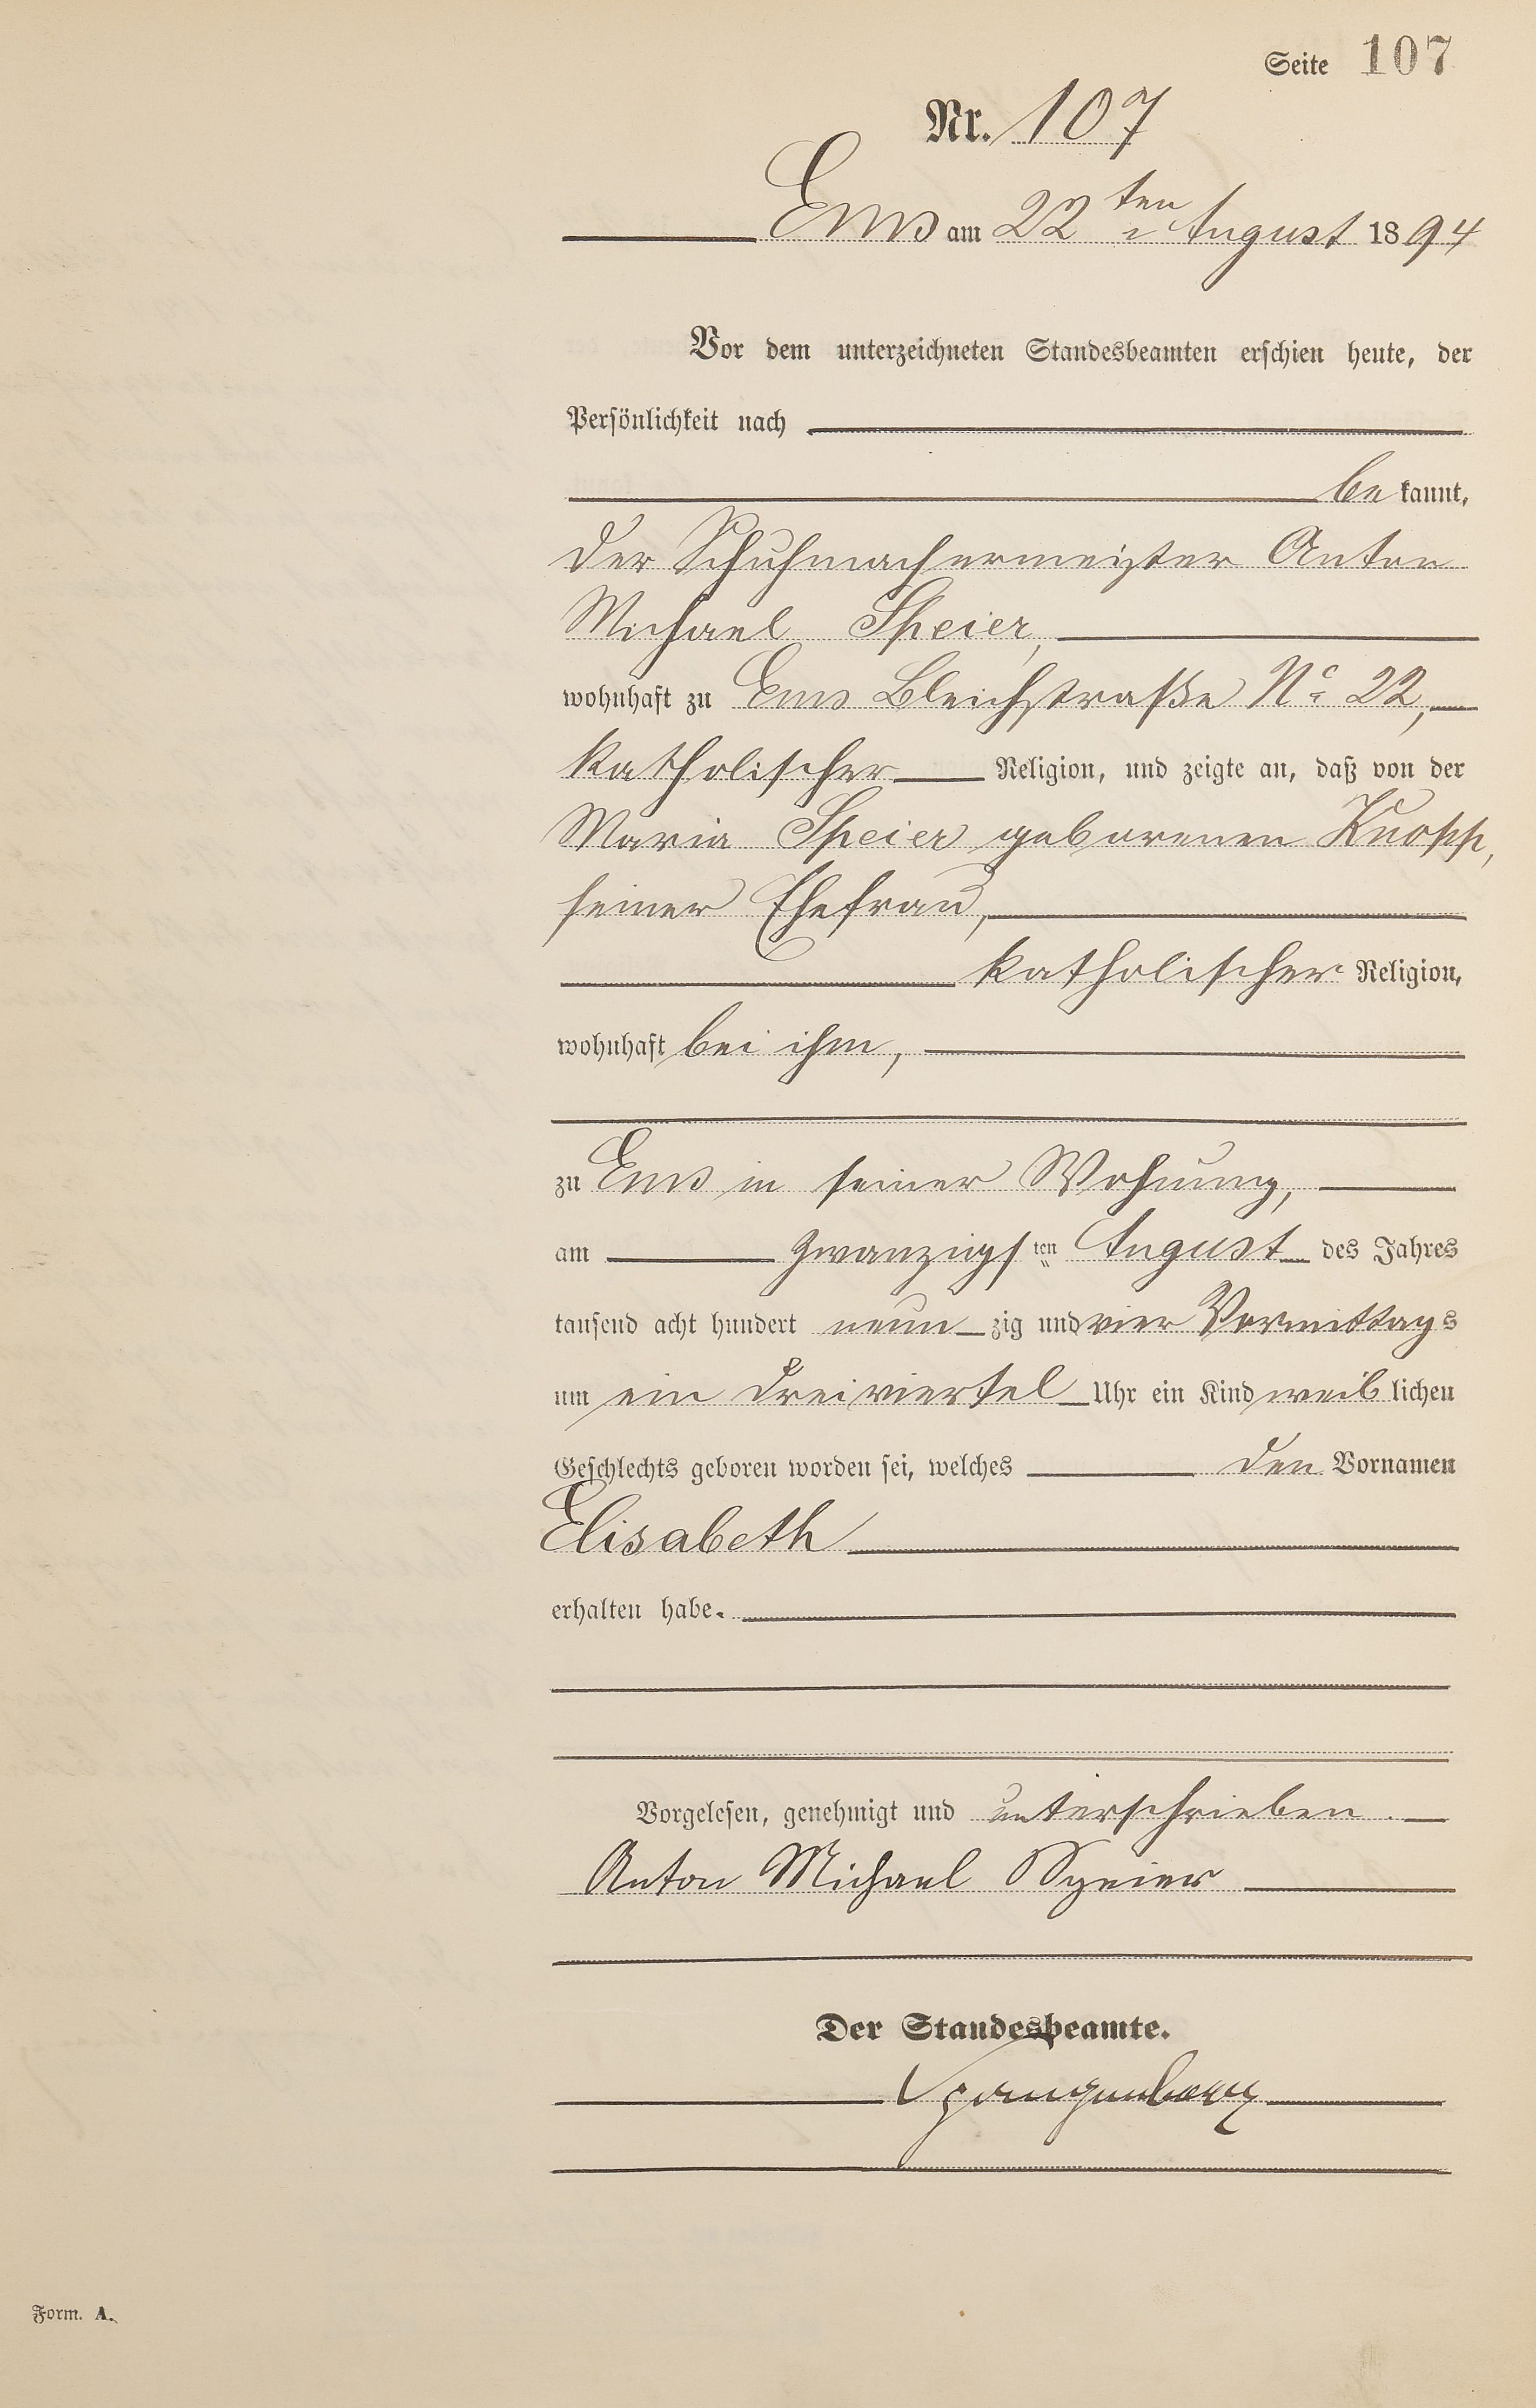 Seite 107
Nr. 107
Ems am 22ten August 1894
Vor dem unterzeichneten Standesbeamten erschien heute, der
Persönlichkeit nach
be kannt,
der Schuhmachermeister Anton
Michael Speier,
wohnhaft zu Ems Bleichstraße No 22,
katholischer Religion, und zeigte an, daß von der
Maria Speier geborenen Knopp,
seiner Ehefrau,
katholischer Religion,
wohnhaft bei ihm,
zu Ems in seiner Wohnung,
am zwanzigsten August des Jahres
tausend acht hundert neun zig und vier Vormittags
um ein dreiviertel Uhr ein Kind weib lichen
Geschlechts geboren worden sei, welches den Vornamen
Elisabeth
erhalten habe.
Vorgelesen, genehmigt und unterschrieben.
Anton Michael Speier
Der Standesbeamte.
Spangenberg
Form. A.